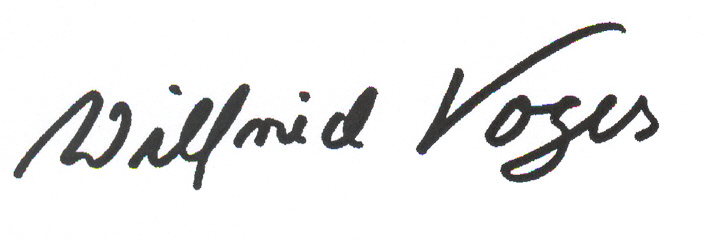 Wilfried Voges